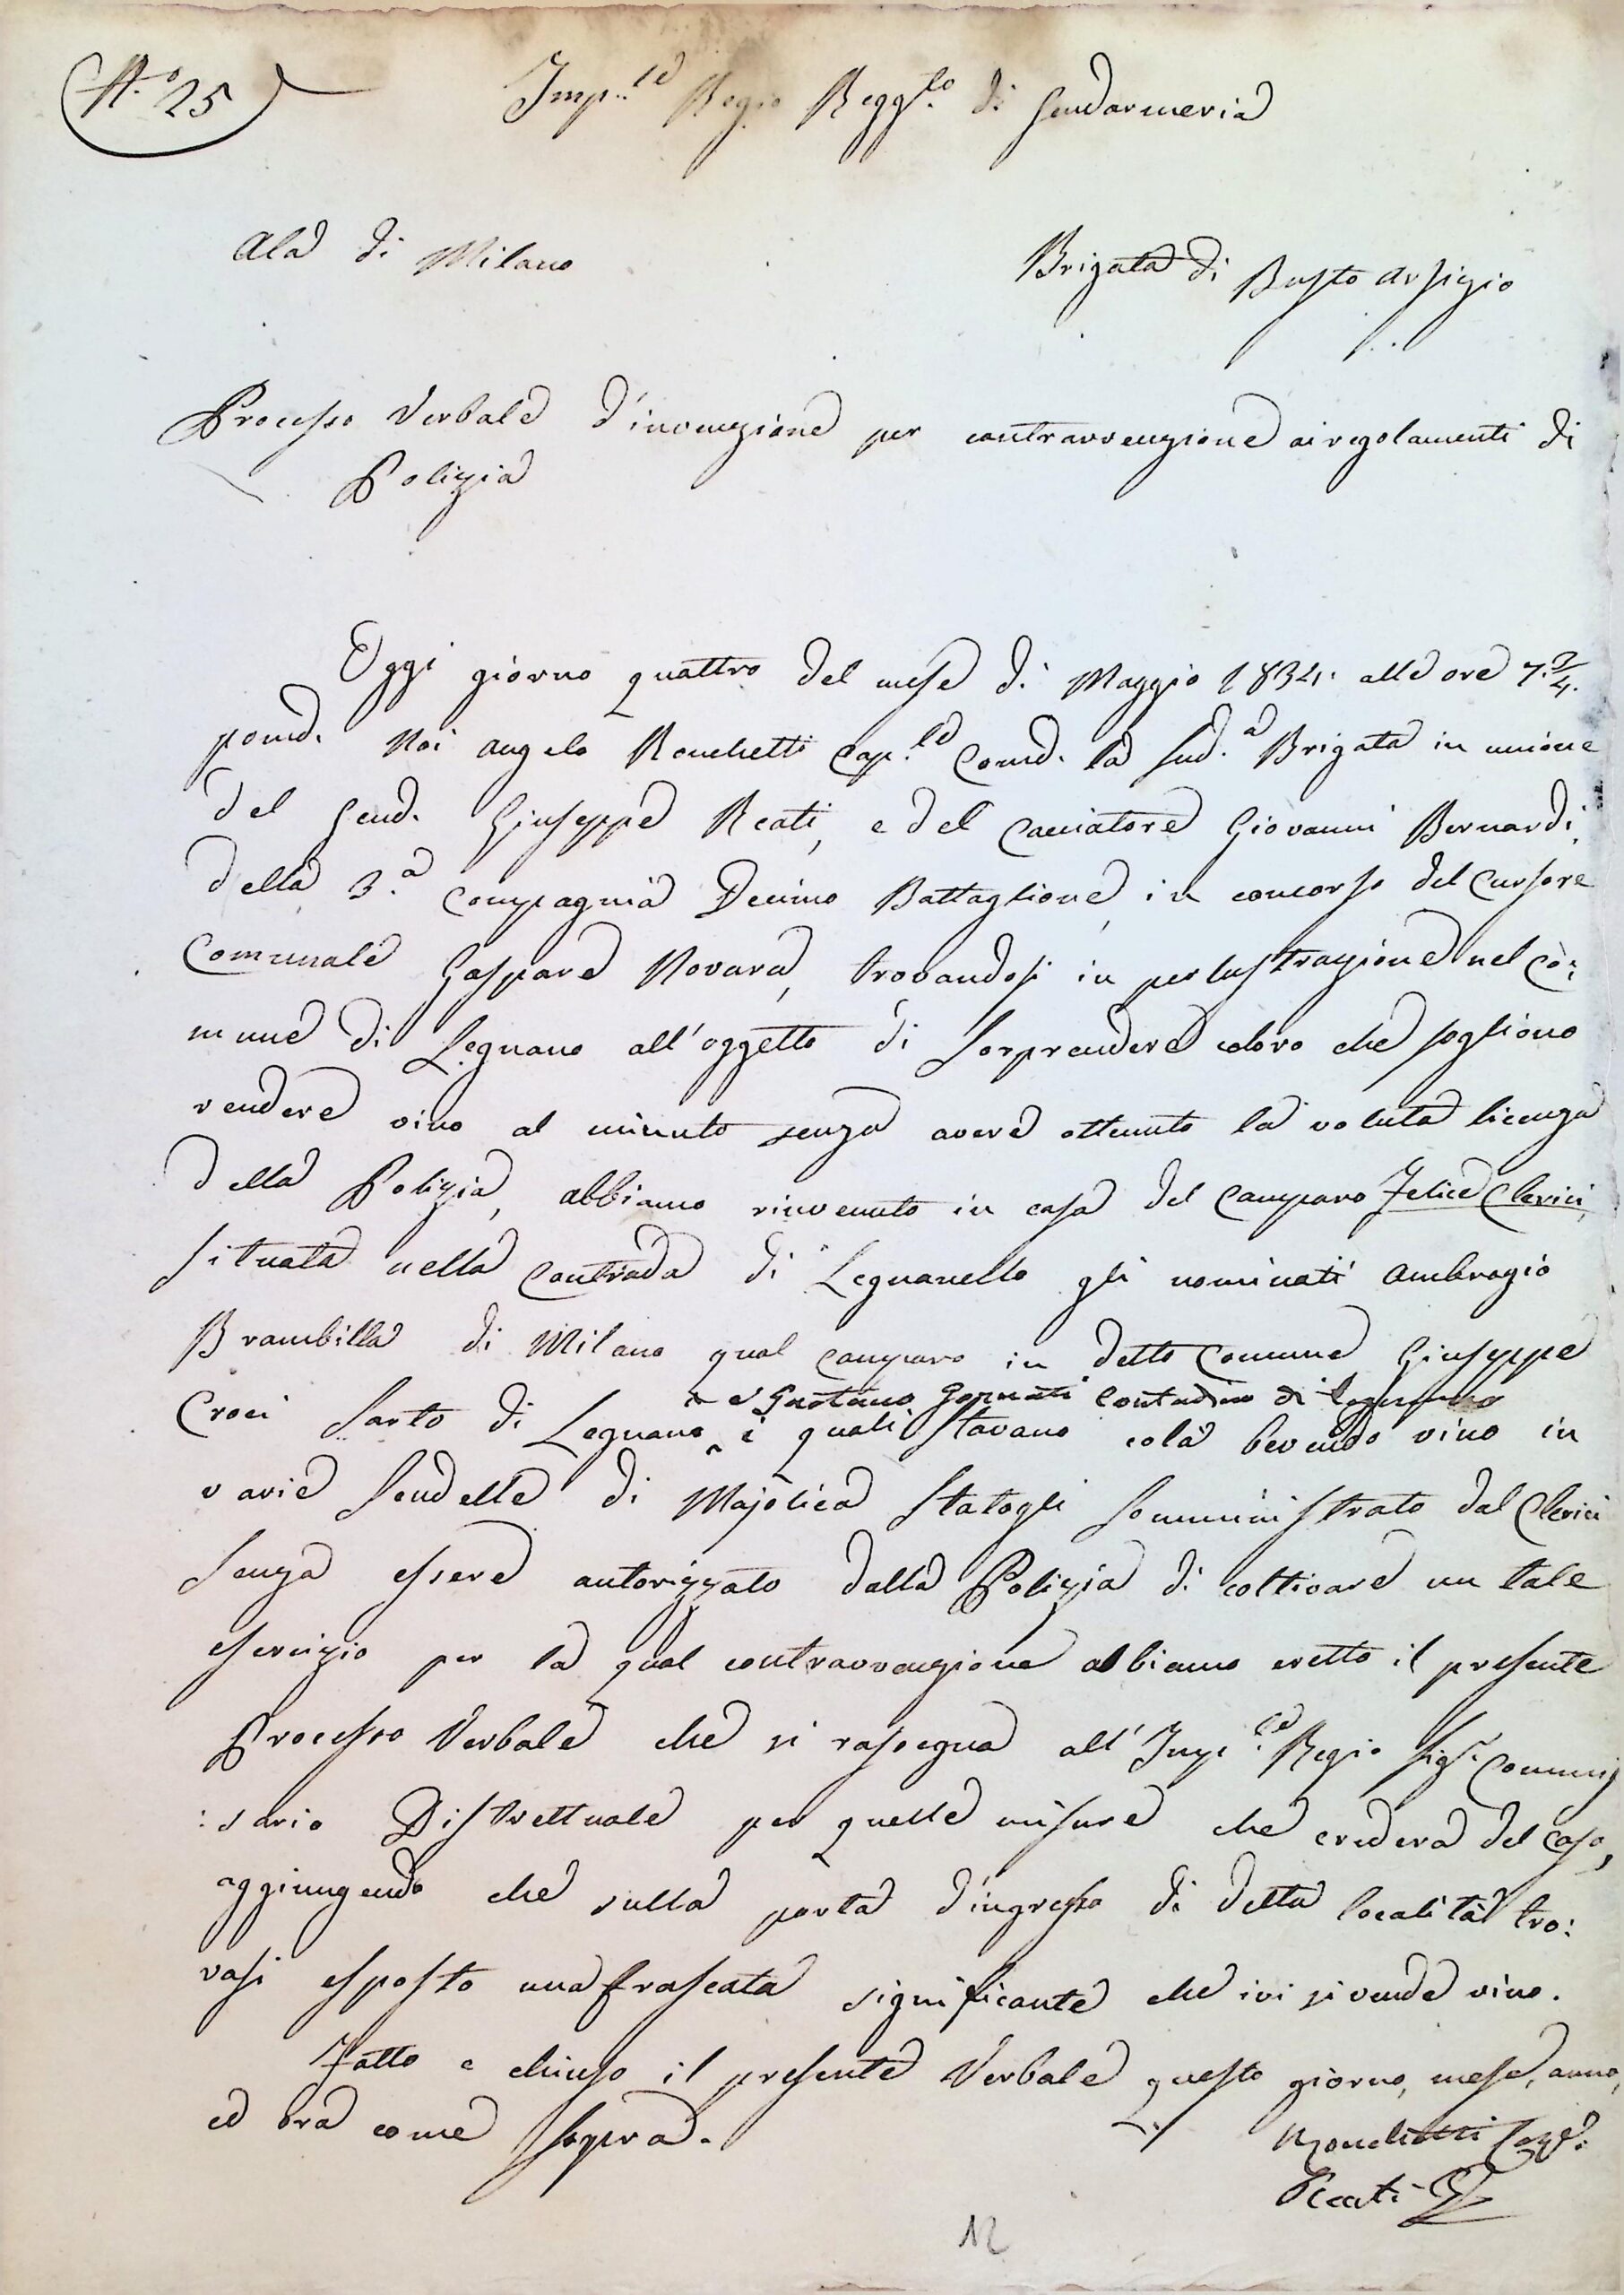 N.° 25
Imp.le Regio Regg.to di Gendarmeria
Ala di Milano
Brigata di Busto Arsizio
Processo Verbale d'invenzione per contravvenzione ai regolamenti di
Polizia
Oggi giorno quattro del mese di Maggio 1834. alle ore 7. 3/4.
pomd. Noi Angelo Ronchetti Cap.le Comd. la sud.a Brigata in unione
del Gend. Giuseppe Reati, e del Cacciatore Giovanni Bernardi,
della 3.a Compagnia Decimo Battaglione, in concorso del Cursore
Comunale Gaspare Novara, trovandosi in perlustrazione nel Co:
mune di Legnano all'oggetto di sorprendere coloro che sogliono
vendere vino al minuto senza avere ottenuto la voluta licenza
della Polizia, abbiamo rinvenuto in casa del Camparo Felice Clerici,
situata nella Contrada di Legnanello gli nominati Ambrogio
Brambilla di Milano qual camparo in detto Comune Giuseppe
e Gaetano Gornati Contadino di Legnano
Croci Sarto di Legnano i quali stavano colà bevendo vino in
varie scudelle di Majolica statogli somministrato dal Clerici
senza essere autorizzato dalla Polizia di coltivare un tale
esercizio per la qual contravvenzione abbiamo eretto il presente
Processo Verbale che si rassegna all'Imp.le Regio Sig.r Commis
:sario Distrettuale per quelle misure che crederà del caso,
aggiungendo che sulla porta d'ingresso di detta località tro:
vasi esposto una frascata significante che ivi si vende vino.
Fatto e chiuso il presente Verbale questo giorno, mese, anno,
ed ora come sopra.
Ronchetti Cap.e
Reati
12